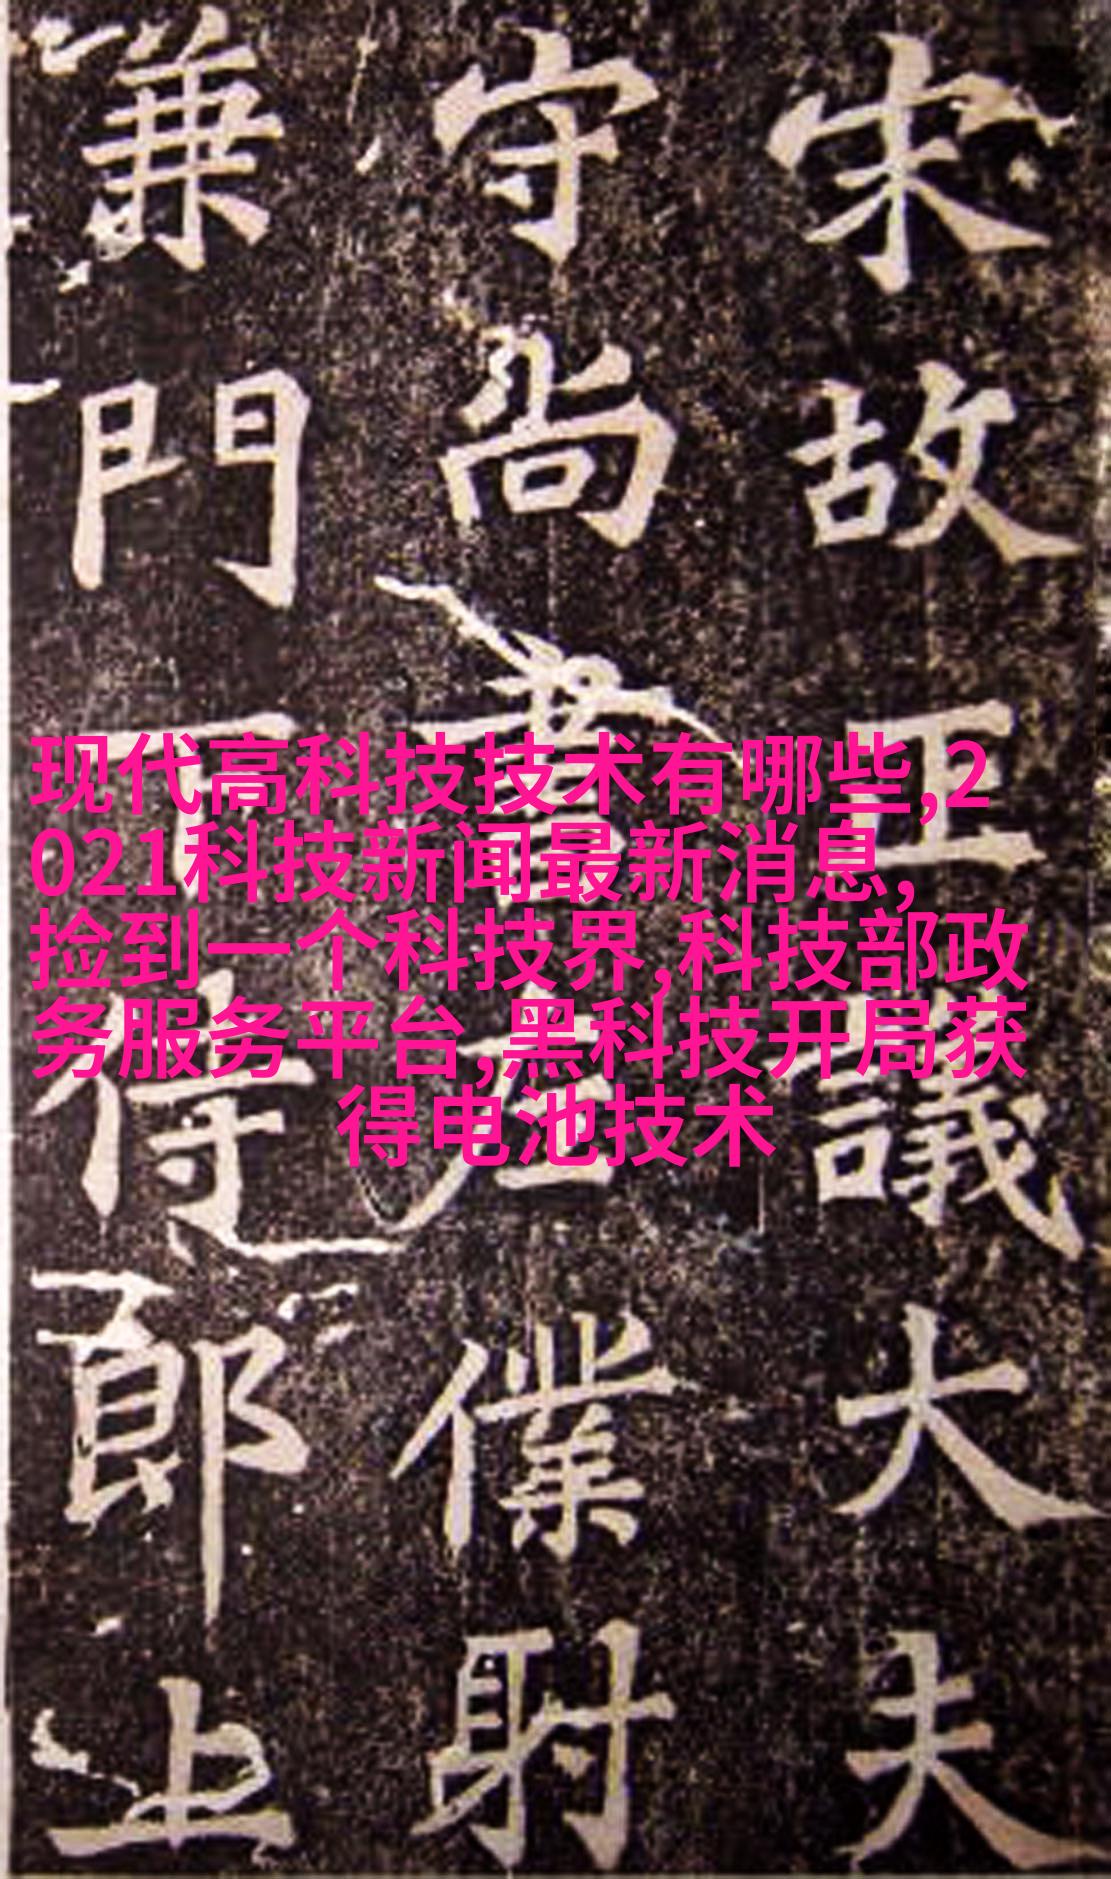 宋故正議大夫
守尚書左僕射
兼門下侍郎上
现代高科技技术有哪些,2
021科技新闻最新消息,
捡到一个科技界,科技部政
务服务平台,黑科技开局获
得电池技术